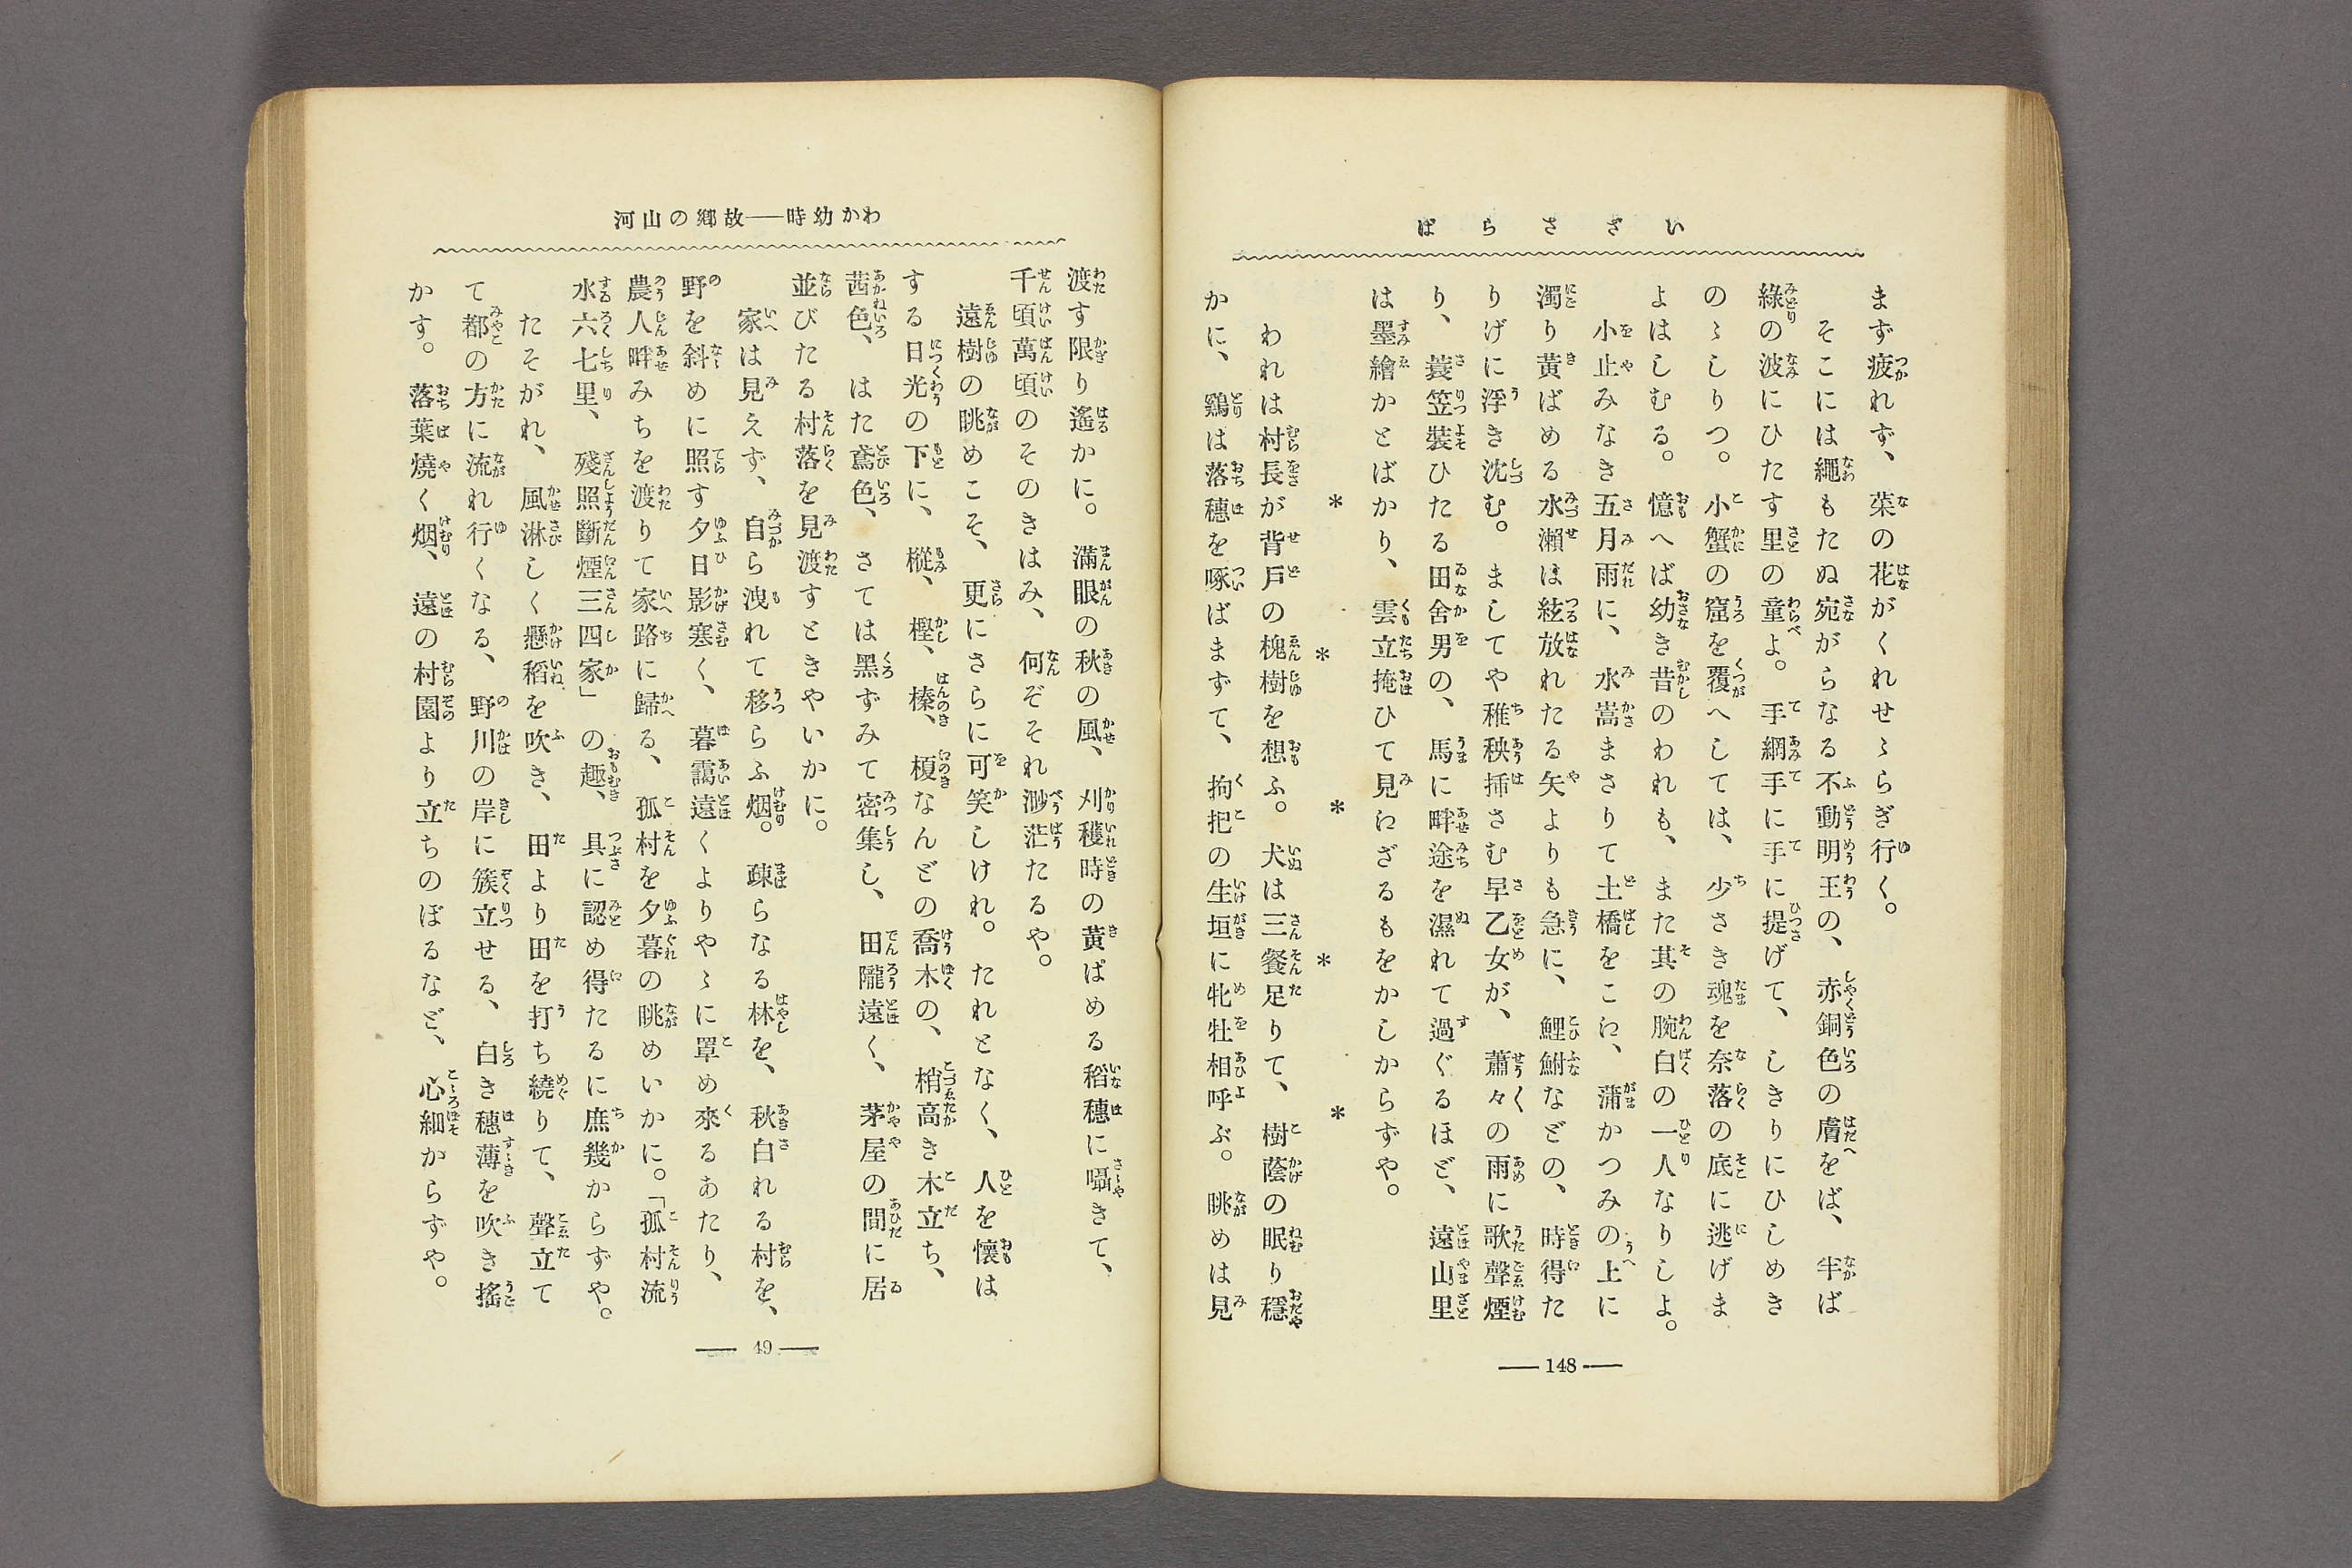 いざさらば
まず疲れず、菜の花がくれせゝらぎ行く。
そこには繩もたぬ宛がらなる不動明王の、赤銅色の膚をば、半ば
綠の波にひたす里の童よ。手網手に手に提げて、しきりにひしめき
のゝしりつ。小蟹の窟を覆へしては、少さき魂を奈落の底に逃げま
よはしむる。憶へば幼き昔のわれも、また其の腕白の一人なりしよ。
小止みなき五月雨に、水嵩まさりて土橋をこえ、蒲かつみの上に
濁り黃ばめる水瀨は絃放れたる矢よりも急に、鯉鮒などの、時得た
りげに浮き沈む。ましてや稚秧揷さむ早乙女が、蕭々の雨に歌聲煙
り、蓑笠裝ひたる田舍男の、馬に畔途を濕れて過ぐるほど、遠山里
は墨繪かとばかり、雲立掩ひて見えざるもをかしからずや。
＊　＊　＊　＊　＊
われは村長が背戶の槐樹を想ふ。犬は三餐足りて、樹蔭の眠り穩
かに、鷄は落穗を啄ばまずて、拘把の生垣に牝牡相呼ぶ。眺めは見
― 148 ―
わが幼時――故鄕の山河
渡す限り遙かに。滿眼の秋の風、刈穫時の黃ばめる稻穗に囁きて、
千頃萬頃のそのきはみ、何ぞそれ渺茫たるや。
遠樹の眺めこそ、更にさらに可笑しけれ。たれとなく、人を懷は
する日光の下に、樅、樫、榛、榎なんどの喬木の、梢高き木立ち、
茜色、はた鳶色、さては黑ずみて密集し、田隴遠く、茅屋の間に居
並びたる村落を見渡すときやいかに。
家は見えず、自ら洩れて移らふ烟。疎らなる林を、秋白れる村を、
野を斜めに照す夕日影寒く、暮靄遠くよりやゝに罩め來るあたり、
農人畔みちを渡りて家路に歸る、孤村を夕暮の眺めいかに。「孤村流
水六七里、殘照斷煙三四家」の趣、具に認め得たるに庶幾からずや。
たそがれ、風淋しく懸稻を吹き、田より田を打ち繞りて、聲立て
て都の方に流れ行くなる、野川の岸に簇立せる、白き穗薄を吹き搖
かす。落葉燒く烟、遠の村園より立ちのぼるなど、心細からずや。
― 49 ―